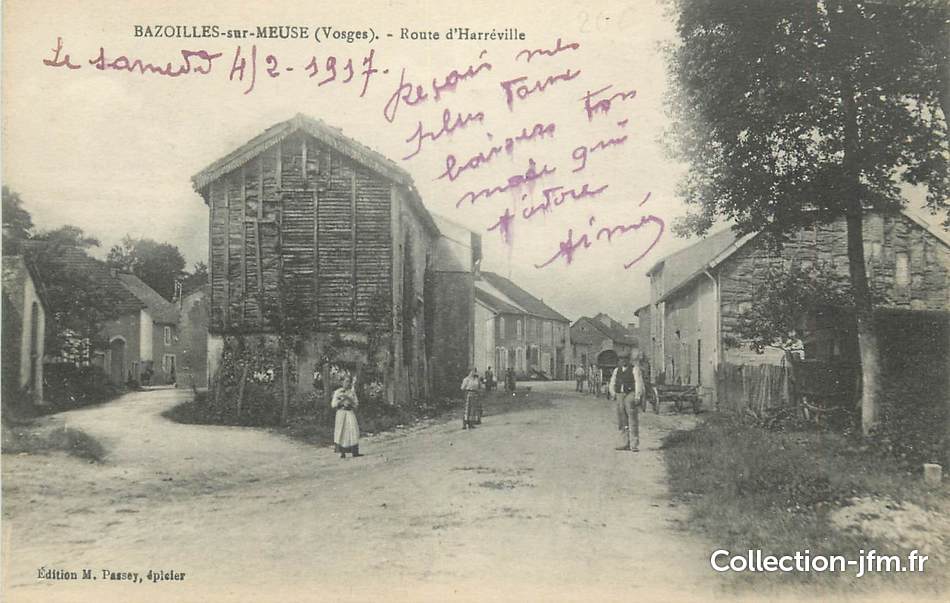 BAZOILLES-sur-MEUSE (Vosges). - Route d'Harréville
Le samedi 4/2-1917.
reçois mes
plus
baisers ton
qui
t'adore
Aimé
Édition M. Passey, épicier
Collection-jfm.fr